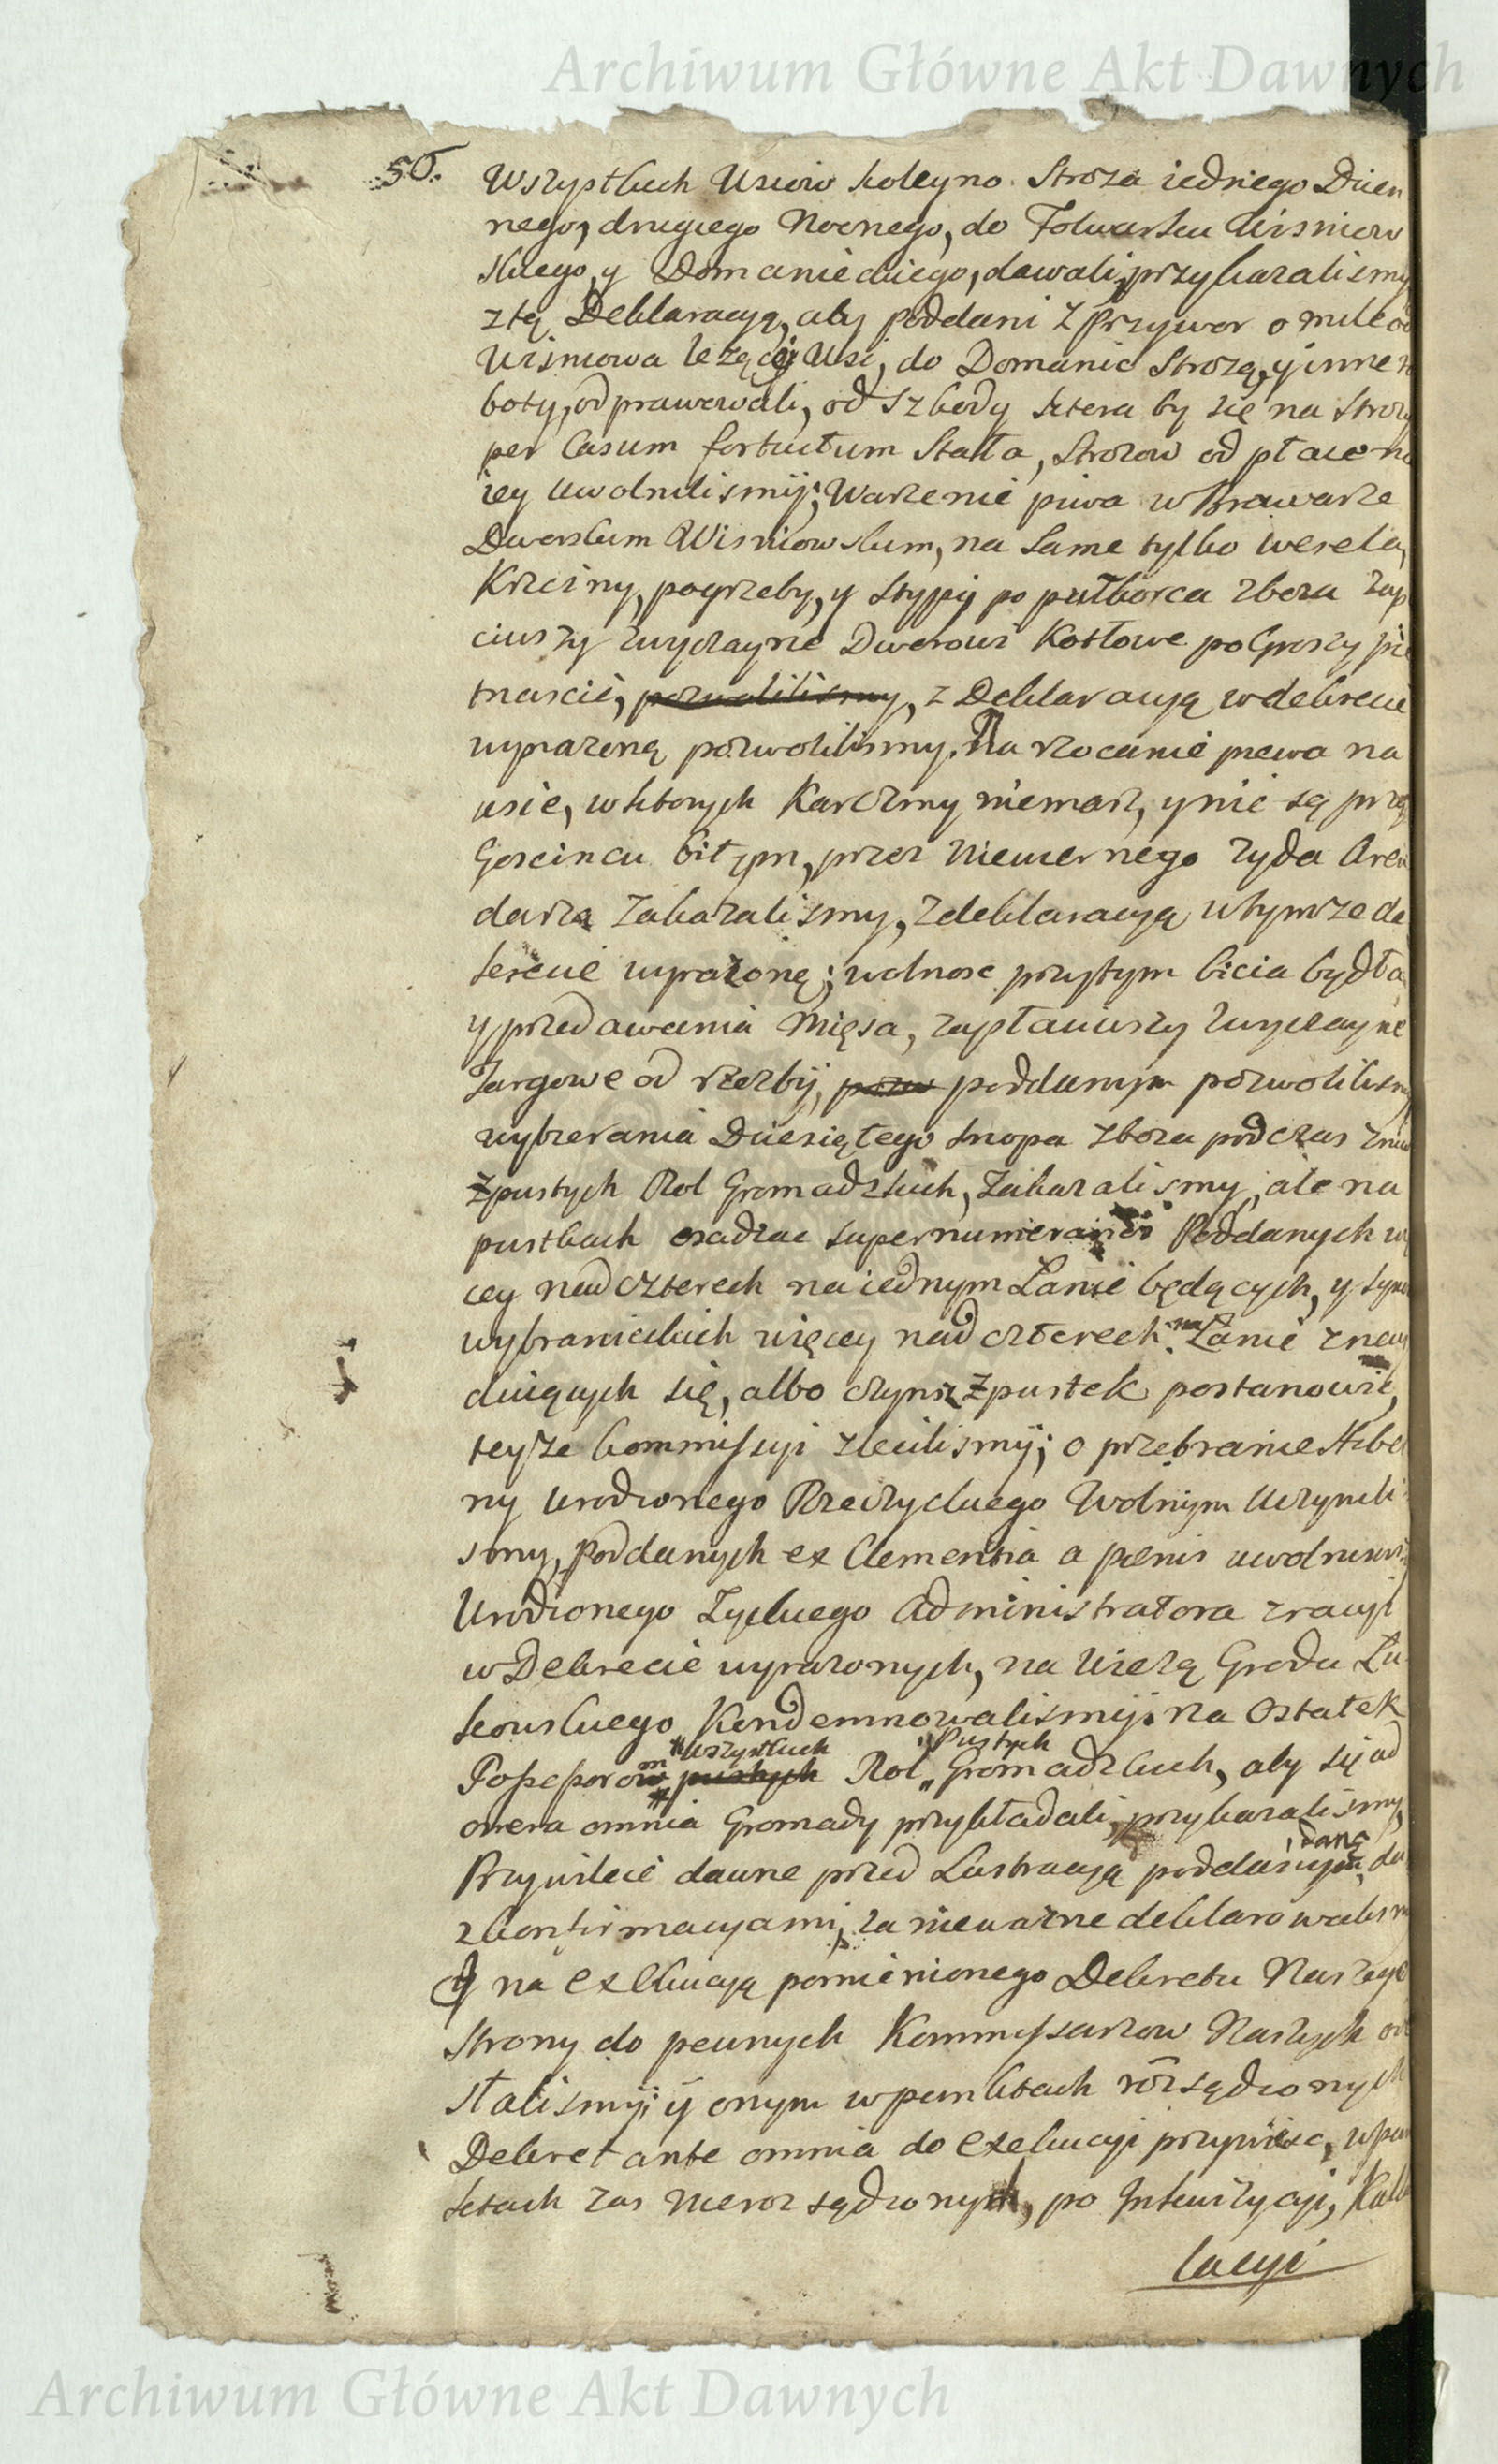 Archiwum Główne Akt Dawnych
50.
Wszystkich Wsiow koleyno Stroza iednego Dzien
nego, drugiego Nocnego, do Folwarku Wisniow
skiego, y Domanickiego, dawali, przykazalismy
z tą Deklaracyą, aby poddani z Przywor o mile od
Wisniowa lezącey Wsi, do Domanic Strozą, y inne ro
boty, odprawowali, od szkody ktera by się na strozy
per Casum fortuitum Stała, Strozow od płacena
iey uwolnilismy; Warzenie piwa w Browarze
Dworskim Wisniowskim, na same tylko wesela,
Krzciny, pogrzeby, y stypy po pułkorca zboza zap
ciwszy zwyczayne Dworowi Kotłowe po Groszy pię
tnascie, pozwolilismy, z Deklaracyą w dekrecie
wyrazoną pozwolilismy. Na rzocanie piwa na
wsie, w ktorych Karczmy niemasz, y nie są przy
Goscincu bitym, przez Niewiernego Zyda Aren
darza zakazalismy, z deklaracyą w tymze de
krecie wyrazoną; wolnosc przytym bicia bydła,
y przedawania Mięsa, zapłaciwszy zwyczayne
Targowe od rzezby, pozw poddanym pozwolilismy
wybierania Dziesiątego snopa zboza podczas zniw
z pustych Rol Gromadzkich, Zakazalismy, ale na
pustkach osadzac supernumerarios Poddanych wię
cey nad czterech na iednym Łanie będących, y tym
wybranieckich więcey nad czterech na Łanie znay
duiących się, albo czynsz z pustek postanowic,
teyze kommissyi zlecilismy; o przebranie Hibe
ny Urodzonego Rzeczyckiego Wolnym Uczynili
smy, Poddanych ex Clementia a poenis uwolniwszy
Urodzonego Zyckiego Administratora z racyi
w Dekrecie wyrazonych, na Wiezą Grodu Łu
kowskiego Kondemnowalismy. na Ostatek
Possessorom wszystkich pustych Rol Pustych Gromadzkich, aby się ad
onera omnia Gromady przykładali, przykazalismy,
Przywileie dawne przed Lustracyą poddanym daną
z konfirmacyami, za niewazne deklarowalismy
Y na exekucyą pomienionego Dekretu Naszego
Strony do pewnych Kommissarzow Naszych ode
słalismy; y onym w punktach rozsądzonych
Dekret ante omnia do Exekucyi przywiesc, w pun
ktach zas nierozsądzonych, po Inkwizycyi, Kalku
lacyi
Archiwum Główne Akt Dawnych